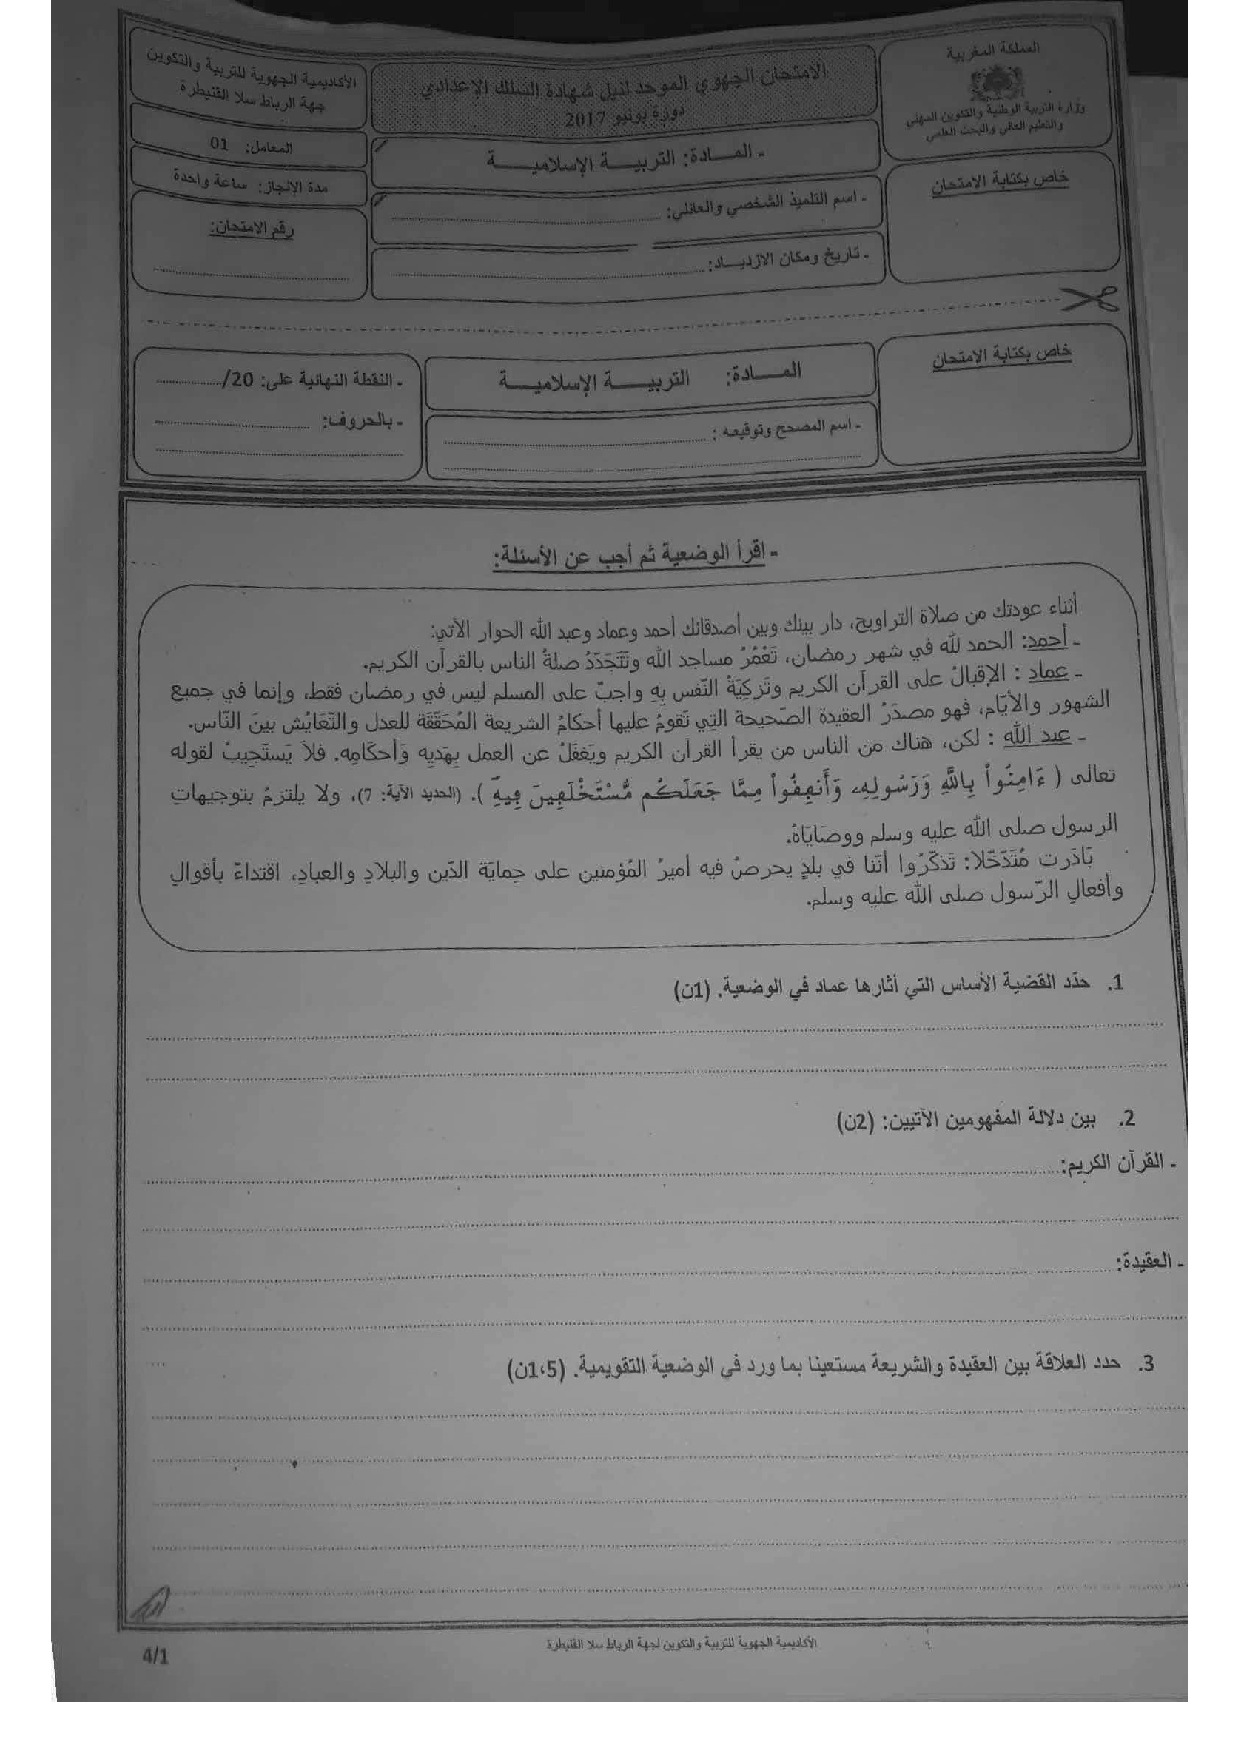 المملكة المغربية
وزارة التربية الوطنية والتكوين المهني
والتعليم العالي والبحث العلمي
الامتحان الجهوي الموحد لنيل شهادة السلك الإعدادي
دورة يونيو 2017
الأكاديمية الجهوية للتربية والتكوين
جهة الرباط سلا القنيطرة
المعامل: 01
ـ المــادة: التربيــة الإسلاميــة
مدة الإنجاز: ساعة واحدة
خاص بكتابة الامتحان
ـ اسم التلميذ الشخصي والعائلي:
رقم الامتحان:
ـ تاريخ ومكان الازديـاد:
خاص بكتابة الامتحان
المــادة: التربيــة الإسلاميــة
ـ النقطة النهائية على: 20/
ـ اسم المصحح وتوقيعه :
ـ بالحروف:
ـ اقرأ الوضعية ثم أجب عن الأسئلة:
أثناء عودتك من صلاة التراويح، دار بينك وبين أصدقائك أحمد وعماد وعبد الله الحوار الآتي:
ـ أحمد: الحمد لله في شهر رمضان، تَعْمُرُ مساجد الله وتَتَجَدَّدُ صلةُ الناس بالقرآن الكريم.
ـ عماد : الإقبالُ على القرآن الكريم وتَزكِيَةُ النّفس بِهِ واجبٌ على المسلم ليس في رمضان فقط، وإنما في جميع
الشهور والأيّام، فهو مصدَرُ العقيدة الصّحيحة التي تَقومُ عليها أحكامُ الشريعة المُحَقِّقة للعدل والتّعايُش بينَ النّاس.
ـ عبد الله : لكن، هناك من الناس من يقرأ القرآن الكريم ويَغفَلُ عن العمل بِهَديِهِ وَأحكَامِه. فلاَ يَستَجيبُ لقوله
تعالى ( ءَامِنُواْ بِاللَّهِ وَرَسُولِهِ، وَأَنفِقُواْ مِمَّا جَعَلَكُم مُّسْتَخْلَفِينَ فِيهِ ). (الحديد الآية: 7)، ولا يلتزمُ بتوجيهاتِ
الرسول صلى الله عليه وسلم ووصَايَاهُ.
بَادَرت مُتَدَخّلا: تَذكّرُوا أنّنا في بلدٍ يحرصُ فيه أميرُ المُؤمنين على حِمايَة الدّين والبلادِ والعبادِ، اقتداءً بأقوالِ
وأفعالِ الرّسول صلى الله عليه وسلم.
1. حدّد القضية الأساس التي أثارها عماد في الوضعية. (1ن)
2. بين دلالة المفهومين الآتيين: (2ن)
ـ القرآن الكريم:
ـ العقيدة:
3. حدد العلاقة بين العقيدة والشريعة مستعينا بما ورد في الوضعية التقويمية. (1،5ن)
الأكاديمية الجهوية للتربية والتكوين لجهة الرباط سلا القنيطرة
4/1